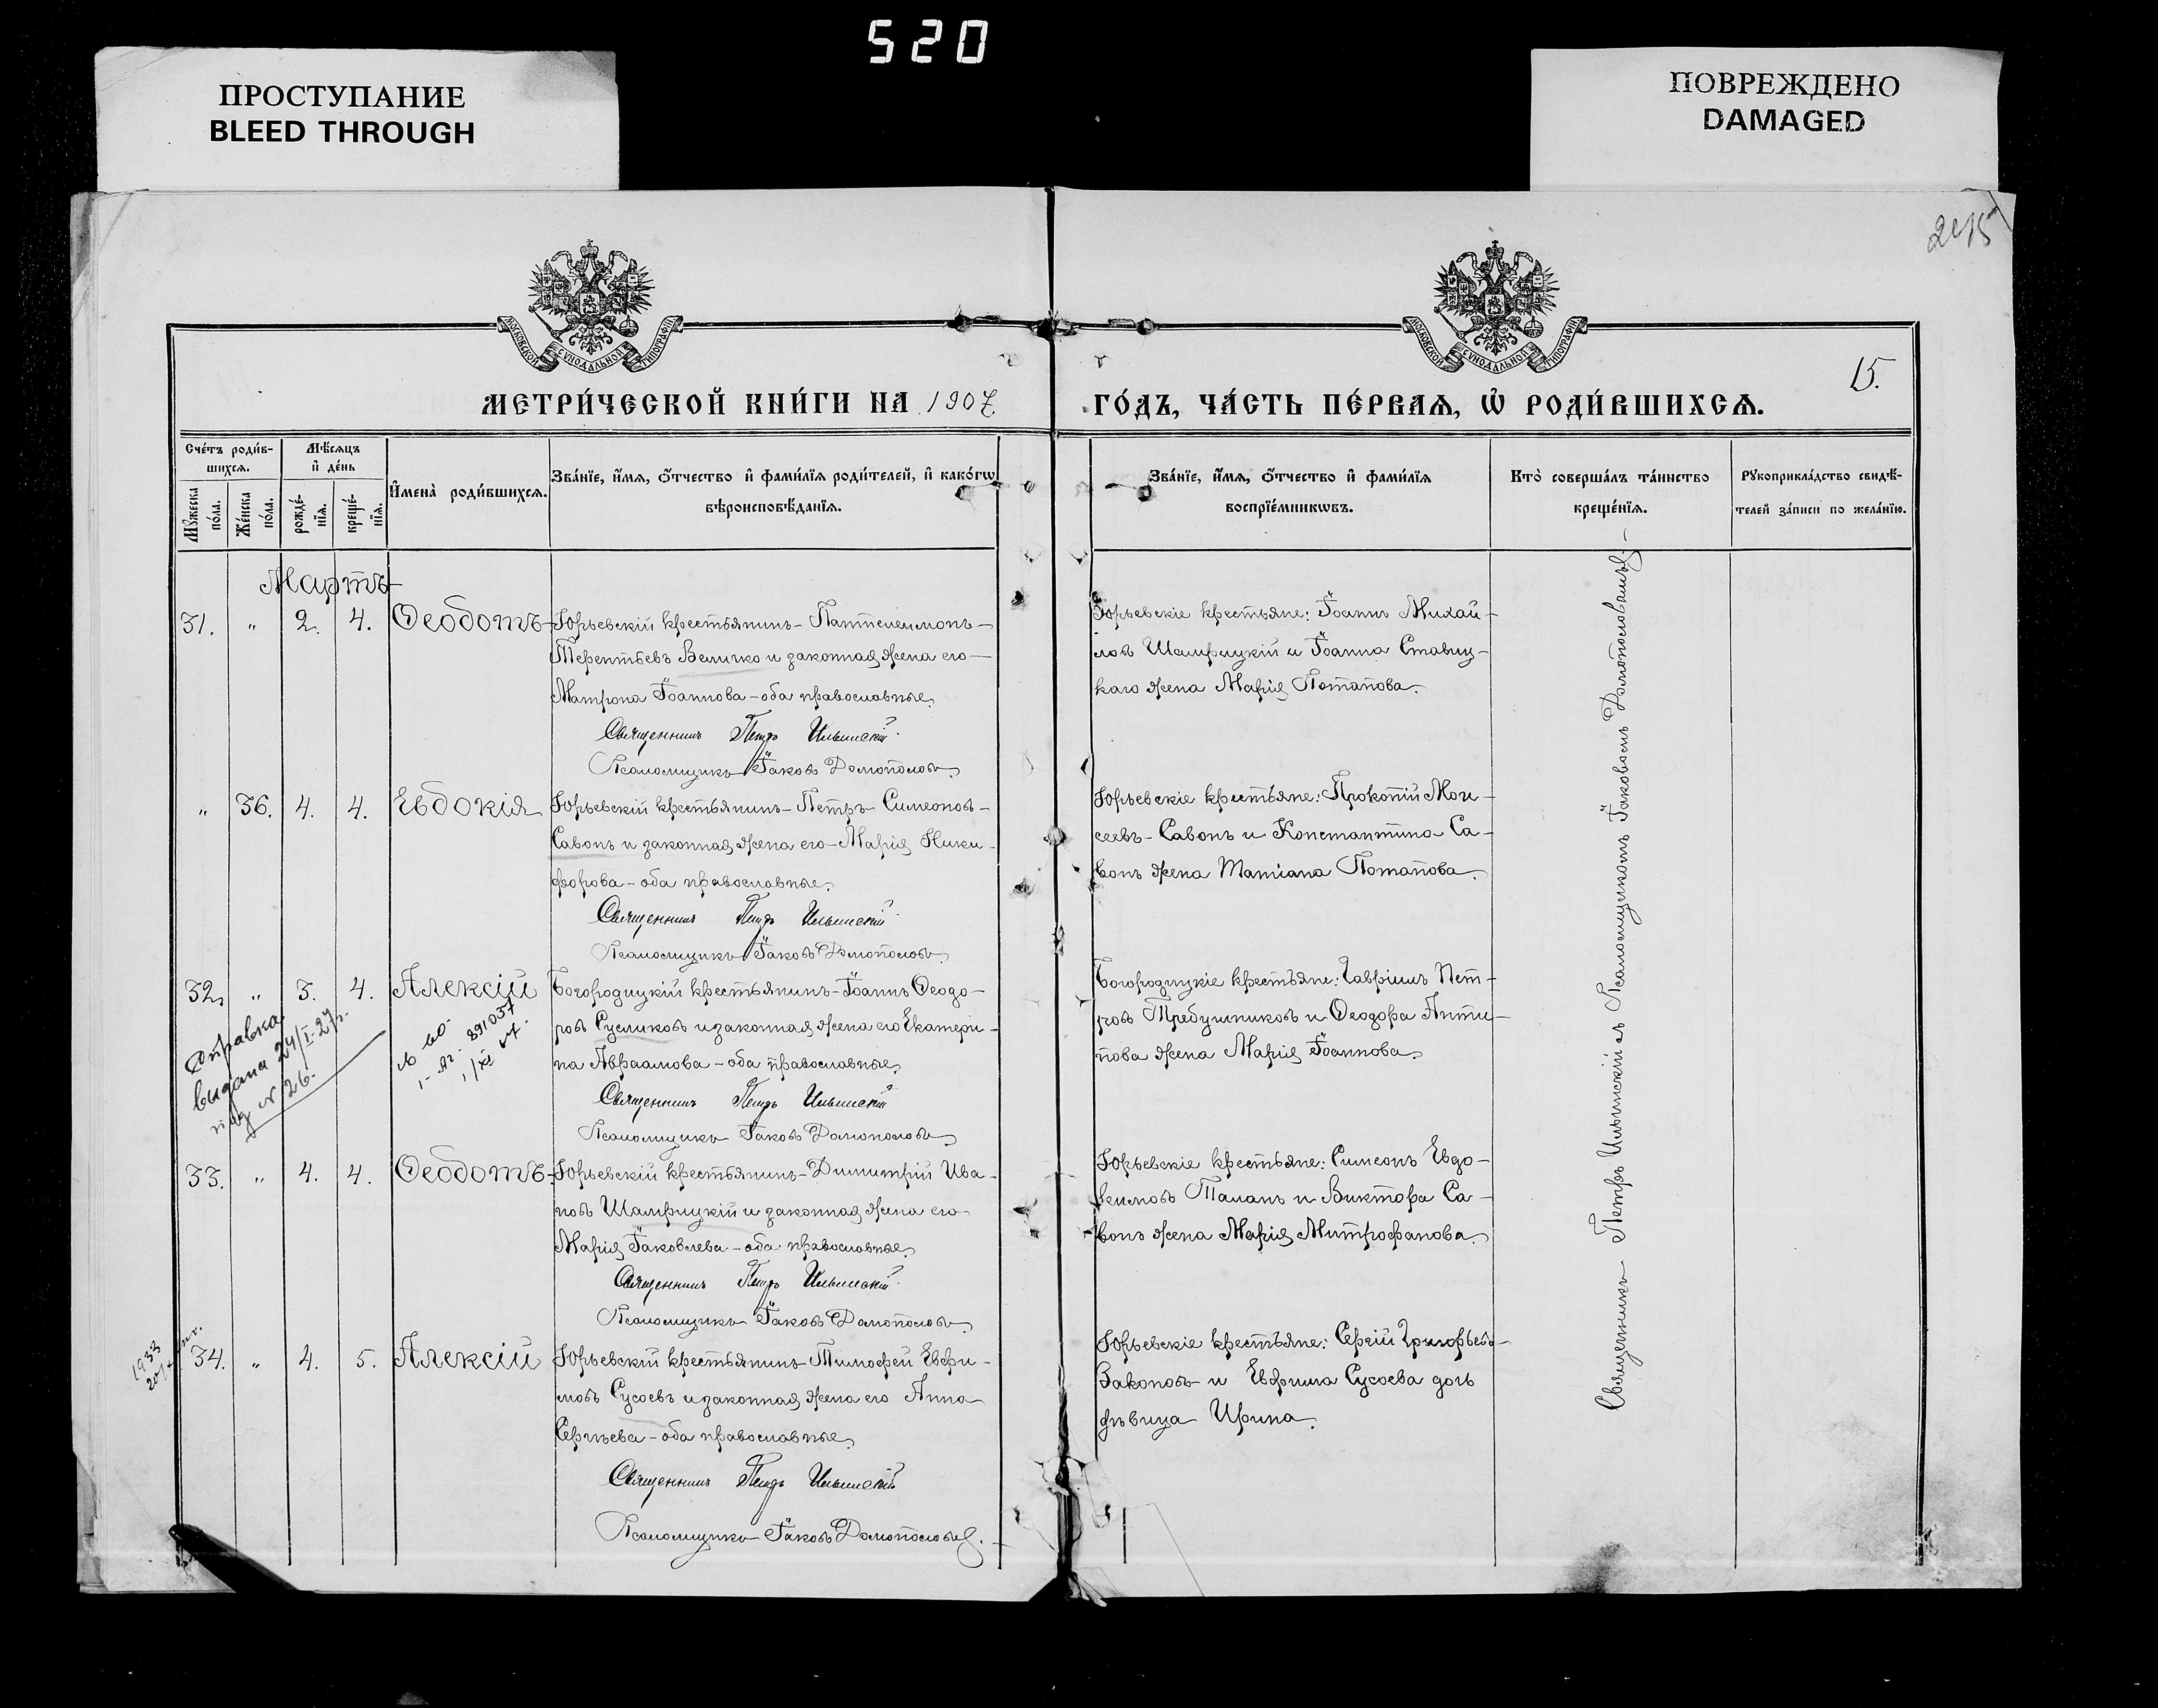 520
ПРОСТУПАНИЕ
BLEED THROUGH
ПОВРЕЖДЕНО
DAMAGED
МОСКОВСКОЙ СУНОДАЛЬНОЙ ТИПОГРАФІИ
МОСКОВСКОЙ СУНОДАЛЬНОЙ ТИПОГРАФІИ
15.
МЕТРИ́ЧЕСКОЙ КНИ́ГИ НА 1907
ГО́ДЪ, ЧА́СТЬ ПЕ́РВАѦ, Ѡ҆ РОДИ́ВШИХСѦ.
Сче́тъ роди́в-
шихсѧ.
Мꙋ́жеска по́ла.
Же́нска по́ла.
Мѣ́сѧцъ
и҆ де́нь
рожде́-
нїѧ.
креще́-
нїѧ.
И҆мена̀ роди́вшихсѧ.
Зва́нїе, и҆́мѧ, ѻ҆́тчество и҆ фами́лїѧ роди́телей, и҆ како́гѡ
вѣроисповѣ́данїѧ.
Зва́нїе, и҆́мѧ, ѻ҆́тчество и҆ фами́лїѧ
воспрїе́мникѡвъ.
Кто̀ соверша́лъ та́инство
креще́нїѧ.
Рꙋкоприкла́дство свидѣ́-
телей за́писи по жела́нїю.
Мартъ
31. " 2. 4. Ѳеодотъ Юрьевскій крестьянинъ Пантелеимонъ
Терентьевъ Величко и законная жена его
Матрона Іоаннова - оба православные.
Священникъ Петръ Ильинскій
Псаломщикъ Іаковъ Домополовъ
Юрьевскіе крестьяне: Іоаннъ Михай-
ловъ Шамрицкій и Іоанна Ставиц-
каго жена Марія Потапова.
" 36. 4. 4. Евдокія Юрьевскій крестьянинъ Петръ Симеоновъ
Савонъ и законная жена его Марія Ники-
форова - оба православные.
Священникъ Петръ Ильинскій
Псаломщикъ Іаковъ Домополовъ
Юрьевскіе крестьяне: Прокопій Мои-
сеевъ Савонъ и Константина Са-
вонъ жена Татіана Потапова.
32. " 3. 4. Алексій Богородицкій крестьянинъ Іоаннъ Ѳеодо-
ровъ Сусликовъ и законная жена его Екатери-
на Авраамова - оба православные.
Священникъ Петръ Ильинскій
Псаломщикъ Іаковъ Домополовъ
справка
видана 24/I-27 г.
под N 26.
891037
Богородицкіе крестьяне: Гавріилъ Пет-
ровъ Требушниковъ и Ѳеодора Анти-
пова жена Марія Іоаннова.
33. " 4. 4. Ѳеодотъ Юрьевскій крестьянинъ Димитрій Ива-
новъ Шамрицкій и законная жена его
Марія Іаковлева - оба православные.
Священникъ Петръ Ильинскій
Псаломщикъ Іаковъ Домополовъ
Юрьевскіе крестьяне: Симеонъ Евдо-
кимовъ Таланъ и Виктора Са-
вонъ жена Марія Митрофанова.
1933
34. " 4. 5. Алексій Юрьевскій крестьянинъ Тимофей Евфи-
мовъ Сусоевъ и законная жена его Анна
Сергѣева - оба православные.
Священникъ Петръ Ильинскій
Псаломщикъ Іаковъ Домополовъ.
Юрьевскіе крестьяне: Сергій Григорьевъ
Законовъ и Евфима Сусоева дочь
дѣвица Ирина.
Священникъ Петръ Ильинскій съ Псаломщикомъ Іаковомъ Домополовымъ.